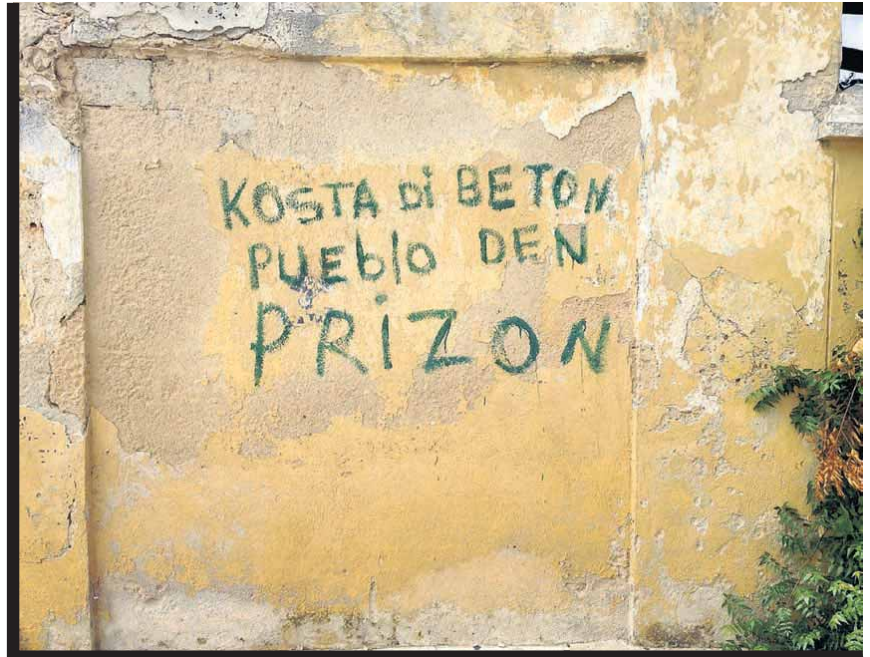 KOSTA Di BETON
PUEblo DEN
PRiZON